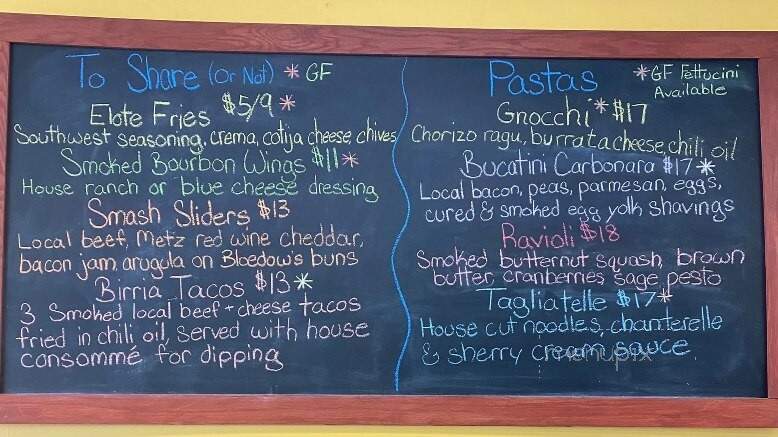 To Share (Or Not) * GF
Elote Fries $5/9 *
Southwest seasoning, crema, cotija cheese, chives
Smoked Bourbon Wings $11 *
House ranch or blue cheese dressing
Smash Sliders $13
Local beef, Metz red wine cheddar,
bacon jam, arugula on Bloedow's buns
Birria Tacos $13 *
3 Smoked local beef + cheese tacos
fried in chili oil, served with house
consommé for dipping
Pastas
*GF Fettucini
Available
Gnocchi * $17
Chorizo ragu, burrata cheese, chili oil
Bucatini Carbonara $17 *
Local bacon, peas, parmesan, eggs,
cured & smoked egg yolk shavings
Ravioli $18
Smoked butternut squash, brown
butter, cranberries, sage pesto
Tagliatelle $17 *
House cut noodles, chanterelle
& sherry cream sauce
menupix